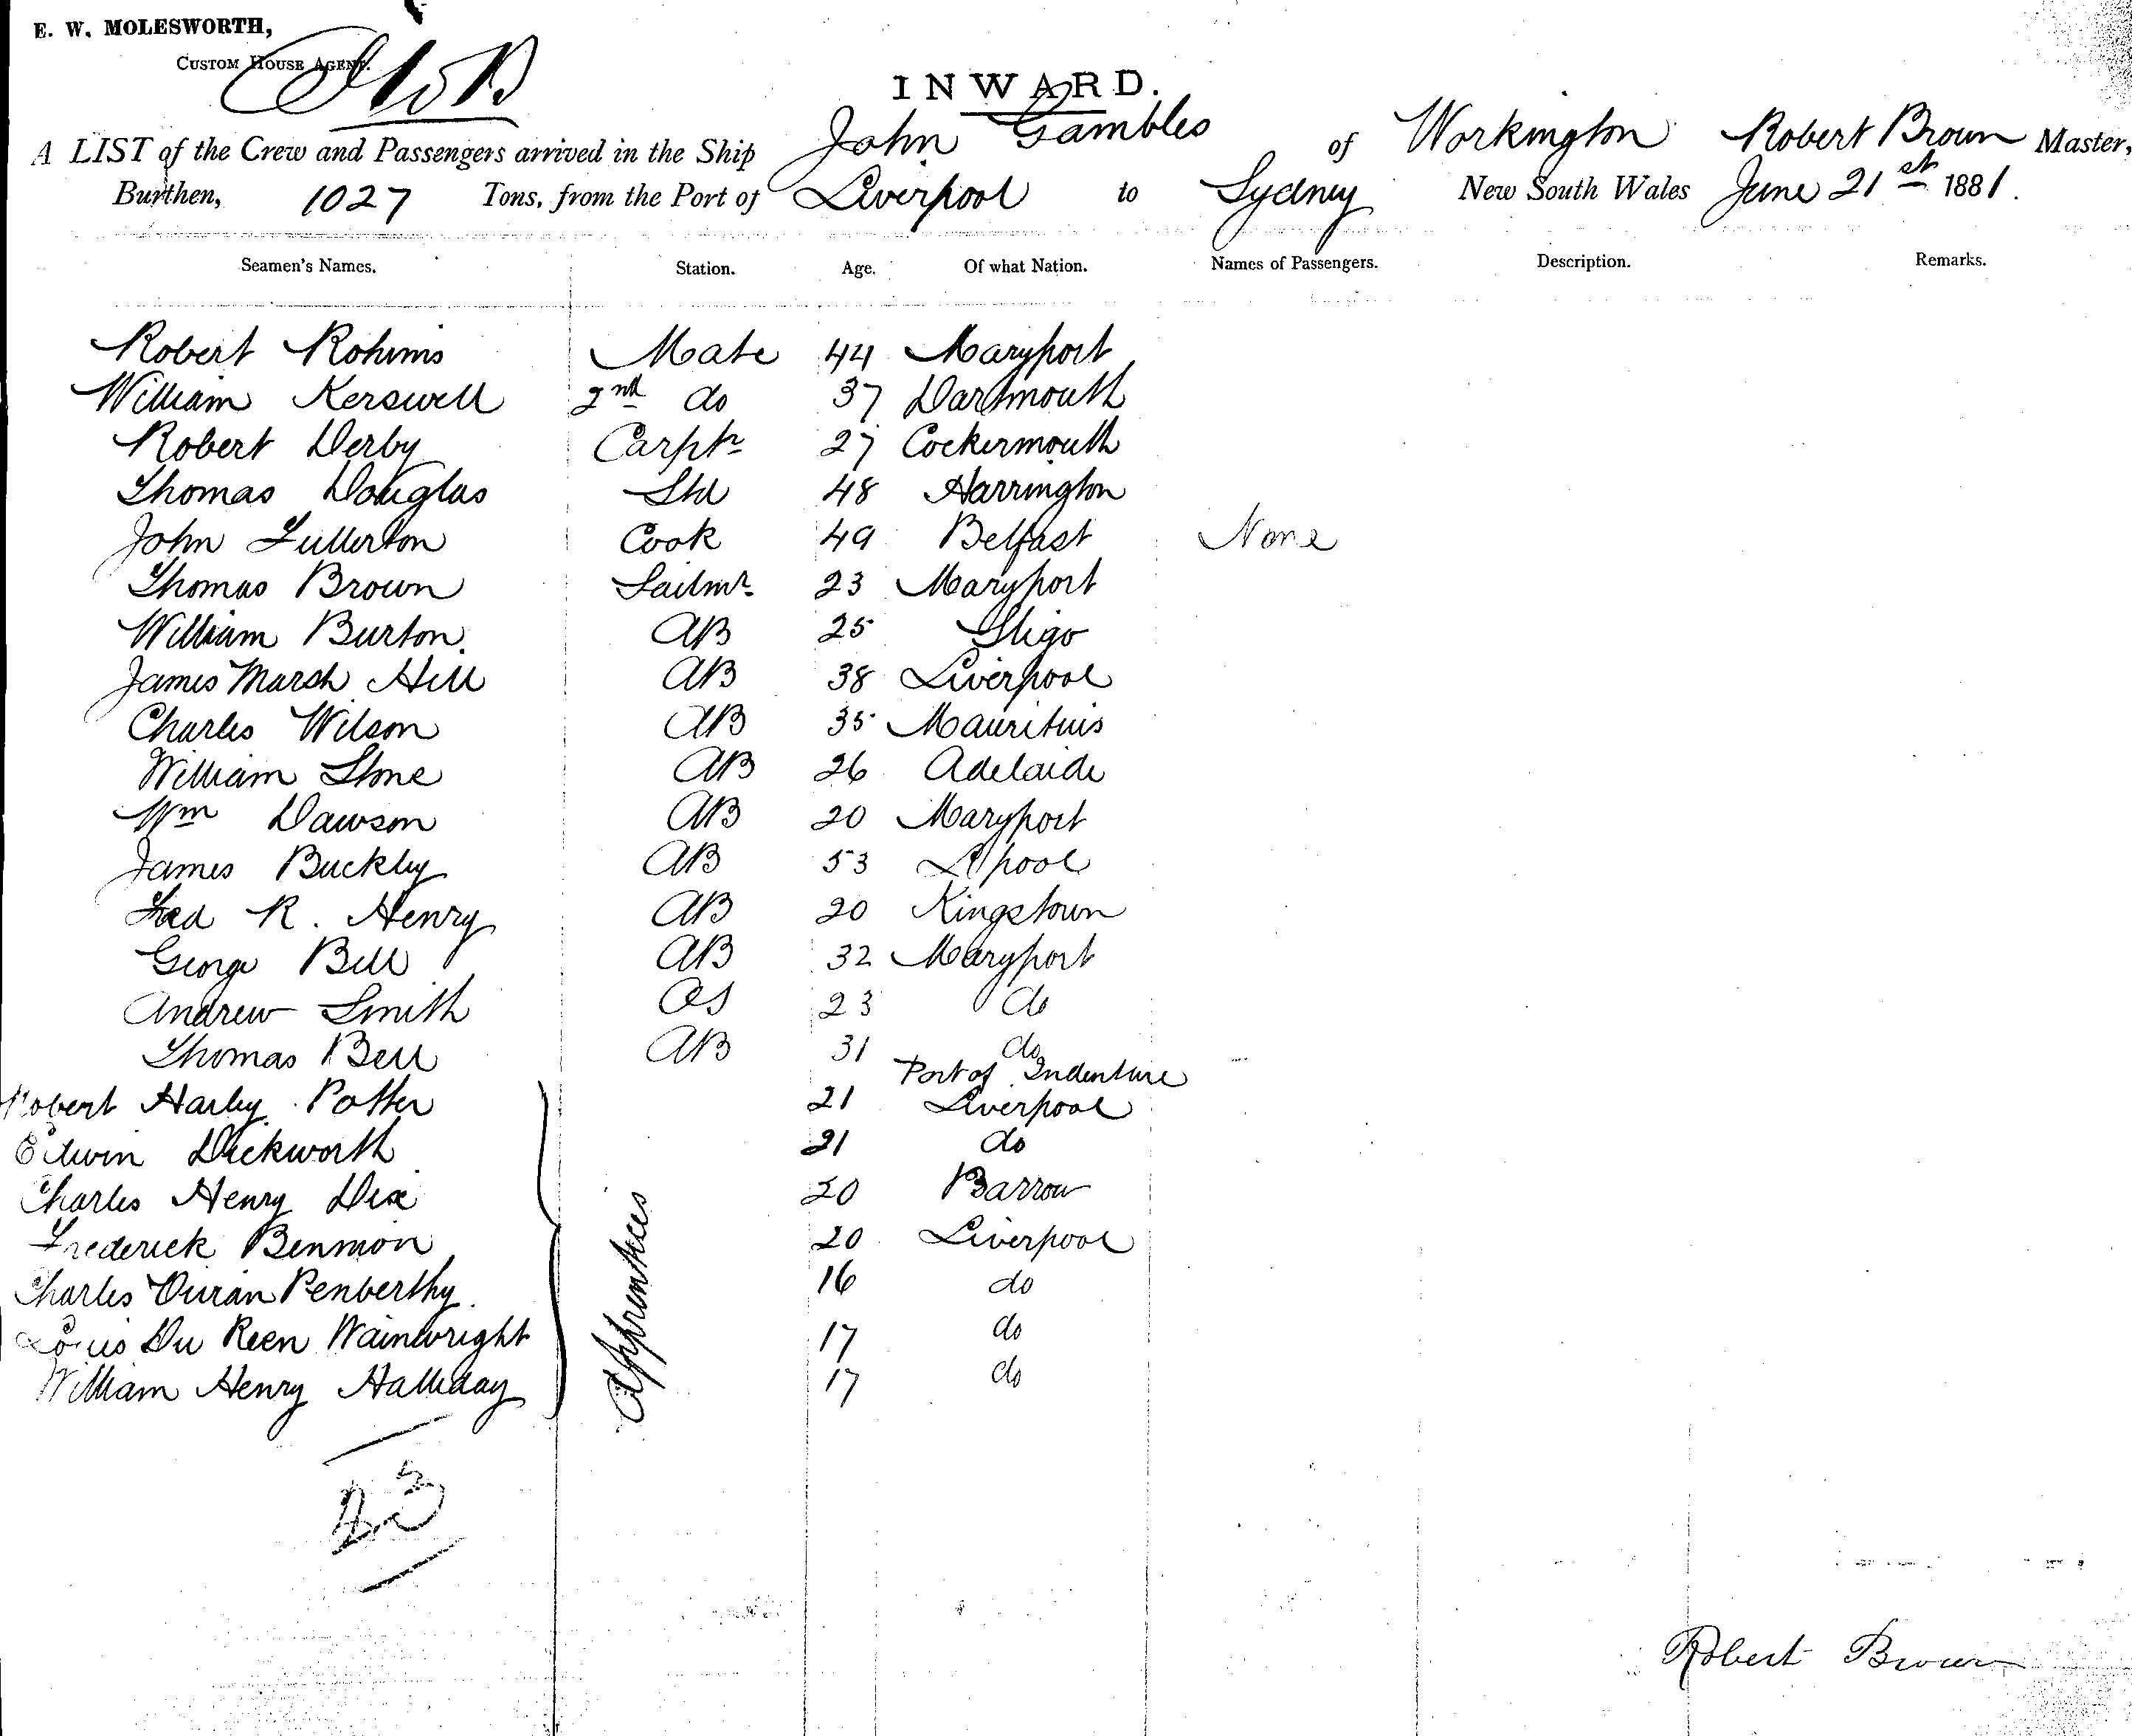 E. W. MOLESWORTH,
CUSTOM HOUSE AGENT.
INWARD.
A LIST of the Crew and Passengers arrived in the Ship John Gambles of Workington Robert Brown Master,
Burthen, 1027 Tons, from the Port of Liverpool to Sydney New South Wales June 21st 1881.
Seamen's Names. Station. Age. Of what Nation. Names of Passengers. Description. Remarks.
Robert Mate 44 Maryport
William Kerswell 2nd do 37 Dartmouth
Robert Derby Carptr 27 Cockermouth
Thomas Douglas Std 48 Harrington
John Fullerton Cook 49 Belfast None
Thomas Brown Sailmr 23 Maryport
William Burton. AB 25 Sligo
James Marsh Hill AB 38 Liverpool
Charles Wilson AB 35 Mauritius
William Stone AB 26 Adelaide
Wm Dawson AB 20 Maryport
James Buckley AB 53 L'pool
Fred R. Henry AB 20 Kingstown
George Bell AB 32 Maryport
Andrew Smith OS 23 do
Thomas Bell AB 31 do
Port of Indenture
Robert Harley Potter 21 Liverpool
Edwin Duckworth 21 do
Charles Henry Dix 20 Barrow
Frederick Benmon 20 Liverpool
Charles Penberthy. 16 do
Louis Du Reen Wainwright 17 do
William Henry Halliday 17 do
Apprentices
23
Robert Brown